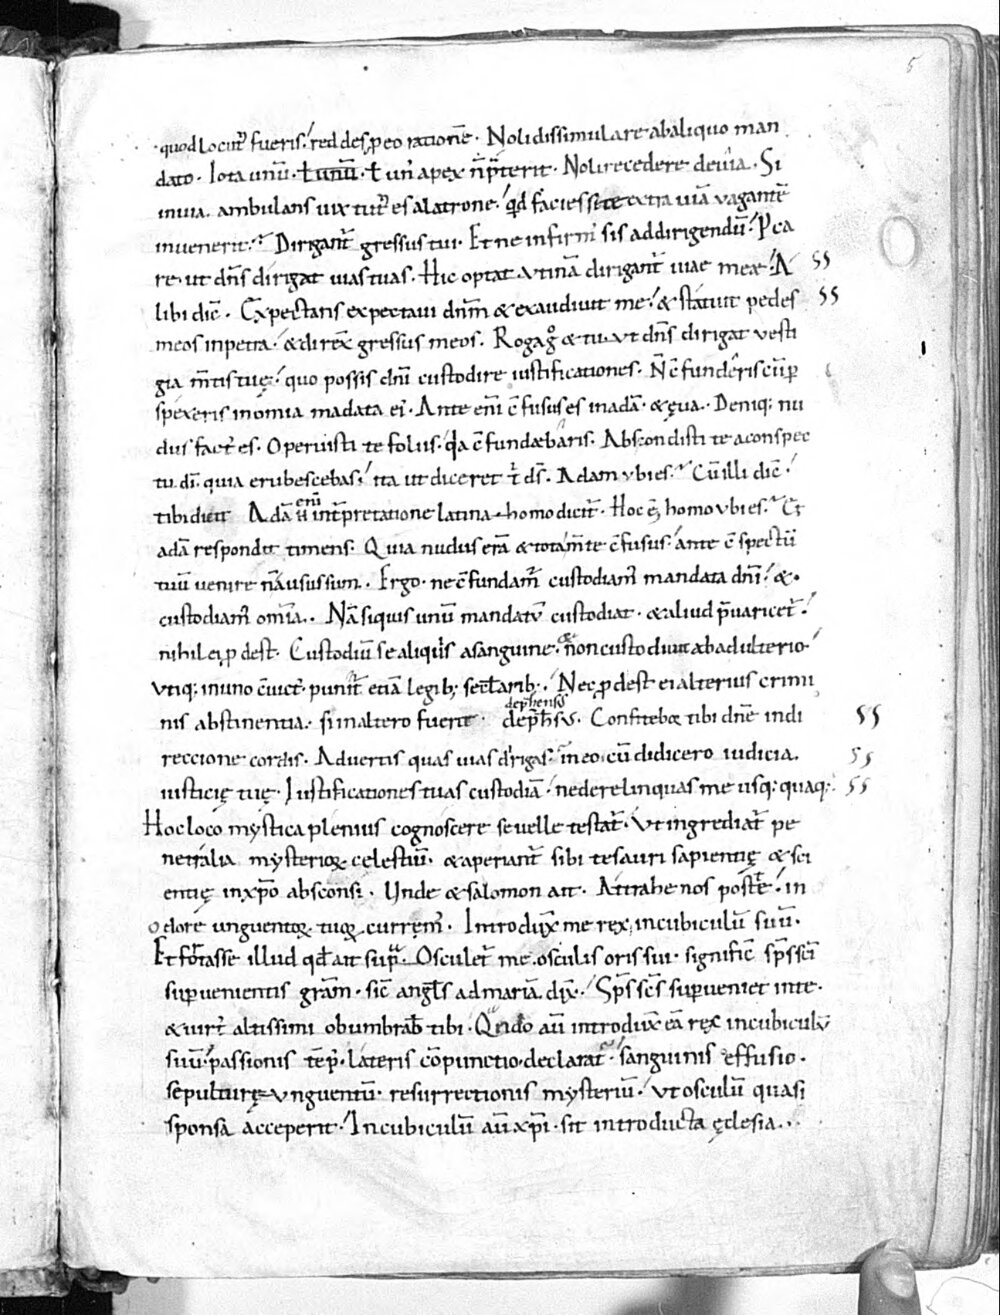 5
quod locut᷒ fueris. reddes ꝑ eo rationē. Noli dissimulare ab aliquo man
dato. Iota unū. ƚ unū. ƚ un᷒ apex n̄ p̄terit. Noli recedere de uia. Si
in uia ambulans uix tut᷒ es a latrone. qd facies si te extra uiā vagantē
inuenerit. Dirigant̄ gressus tui. Et ne infirm᷒ sis ad dirigendū. Pca
re. ut dn̄s dirigat uias tuas. Hic optat. utinā dirigant̄ uiae meae. A ss
libi dic̄. Expectans expectaui dnm̄ & exaudiuit me. & statuit pedes ss
meos in petra. & direx̄ gressus meos. Roga g̊ & tu. ut dn̄s dirigat vesti
gia m̄tis tuę. quo possis dn̄i custodire iustificationes. N c̄funderis cū ꝑ
spexeris in om̄ia mādata ei᷒. Ante eni c̄fusus es in adā. & ęua. Deniq; nu
dus fact᷒ es. Operuisti te foliis. qa c̄fundebaris. Abscondisti te a conspec
tu. di. quia erubescebas. ita ut diceret t̄ ds̄. Adam ubi es. Cū illi dic̄.
tibi dicit Adā enī interpretatione latina homo dicit̄. Hoc ē, homo ubi es. Et
adā respondit timens. Quia nudus erā & tota m̄te c̄fusus. ante c̄spectū
tuū uenire n̄ ausus sum. Ergo. ne c̄fundam᷒ custodiam᷒ mandata dn̄i. &
custodiam᷒ omīa.. Nā si quis unū mandatū custodiat. & aliud p̄uaricet᷒.
nihil ei ꝓdest. Custodiū se aliquis a sanguine. & non custodiuit ab adulterio.
utiq; in uno c̄uict᷒. punit᷒ etiā legib; sec̄larib;. Nec ꝓdest ei alterius crimi
nis abstinentia. si in altero fuerit dep̄hensus
dep̄hsus. Confitebor tibi dn̄e in di ss
reccione cordis. Aduertis quas uias dirigas. in eo cū didicero iudicia. ss
iusticię tuę. Iustificationes tuas custodiā. ne derelinquas me usq; quaq;. ss
Hoc loco mystica plenius cognoscere se uelle testat᷒. Ut ingrediat᷒ pe
netralia mysterioꝝ celestiū. & aperiant᷒ sibi tesauri sapientię & sci
entię in xp̄o absconsi. Unde & salomon ait. Attrahe nos post te. in
odore unguentoꝝ tuoꝝ currem᷒. Introdux̄ me rex, in cubiculū suū.
Et fortasse illud qd̄ ait supra. Osculet᷒ me. osculis oris sui. signific̄ sp̄s sc̄i
supuenientis grām. sic̄ angl̄s ad mariā. dix̄. Sp̄s sc̄s supueniet in te.
& uirt᷒ altissimi obumbrab̄ tibi. Qndo aū introdux̄ eā rex in cubiculū
suū. passionis tēp᷒. lateris cōpunctio. declarat᷒. sanguinis effusio.
sepulturę unguentū. resurrectionis mysteriū. ut osculū quasi
sponsa acceperit. In cubiculū aū xp̄i. sit introducta ęclesia..